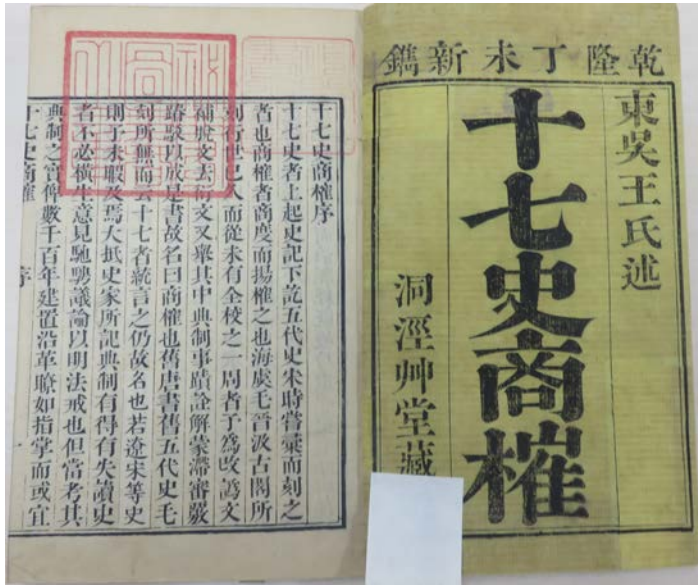 乾隆丁未新鐫
東吳王氏述
十七史商榷
洞涇艸堂藏
十七史商榷序
十七史者上起史記下訖五代史宋時嘗彙而刻之
者也商榷者商度而揚榷之也海虞毛晉汲古閣所
刻行世已久而從未有全校之一周者予爲改譌文
補脫文去衍文又舉其中典制事蹟詮解蒙滯審覈
踳駁以成是書故名曰商榷也舊唐書舊五代史毛
刻所無而云十七者統言之仍故名也若遼宋等史
則予未暇及焉大抵史家所記典制有得有失讀史
者不必橫生意見馳騁議論以明法戒也但當考其
典制之實俾數千百年建置沿革瞭如指掌而或宜
十七史商榷 序 一